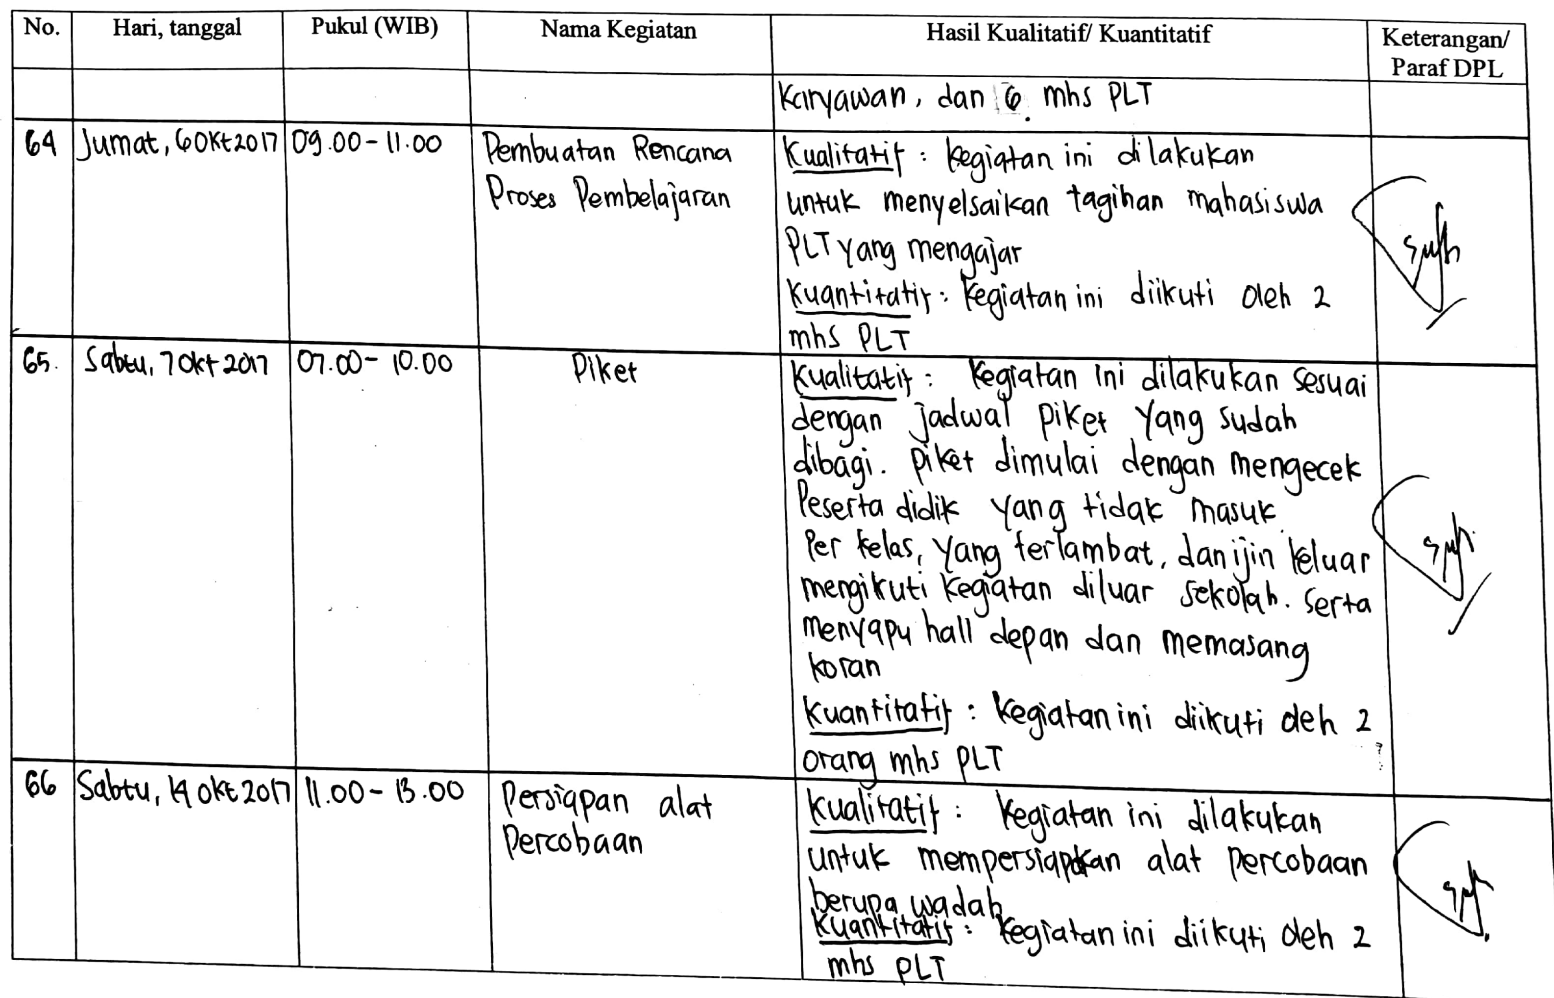 No. Hari, tanggal Pukul (WIB) Nama Kegiatan Hasil Kualitatif/ Kuantitatif Keterangan/
Paraf DPL
Karyawan, dan 6 mhs PLT
64 Jumat, 6 Okt 2017 09.00 - 11.00 Pembuatan Rencana Kualitatif : Kegiatan ini dilakukan
Proses Pembelajaran untuk menyelsaikan tagihan mahasiswa
PLT yang mengajar
Kuantitatif : Kegiatan ini diikuti oleh 2
mhs PLT
65. Sabtu, 7 Okt 2017 07.00 - 10.00 Piket Kualitatif : Kegiatan ini dilakukan sesuai
dengan jadwal piket yang sudah
dibagi. piket dimulai dengan mengecek
Peserta didik yang tidak masuk
Per kelas, yang terlambat, dan ijin keluar
mengikuti kegiatan diluar sekolah. serta
menyapu hall depan dan memasang
koran
Kuantitatif : Kegiatan ini diikuti oleh 2
orang mhs PLT
66 Sabtu, 14 Okt 2017 11.00 - 13.00 Persiapan alat Kualitatif : Kegiatan ini dilakukan
Percobaan untuk mempersiapkan alat percobaan
berupa wadah
Kuantitatif : Kegiatan ini diikuti oleh 2
mhs PLT